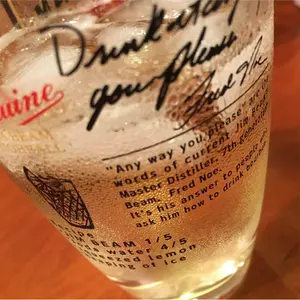 Drink it any
way you please
uine
Fred Noe
"Any way you please" are the
words of current Jim Beam
Master Distiller, 7th generation
Beam, Fred Noe.
It's his answer to people
ask him how to drink
BEAM 1/5
water 4/5
squeezed lemon
of ice